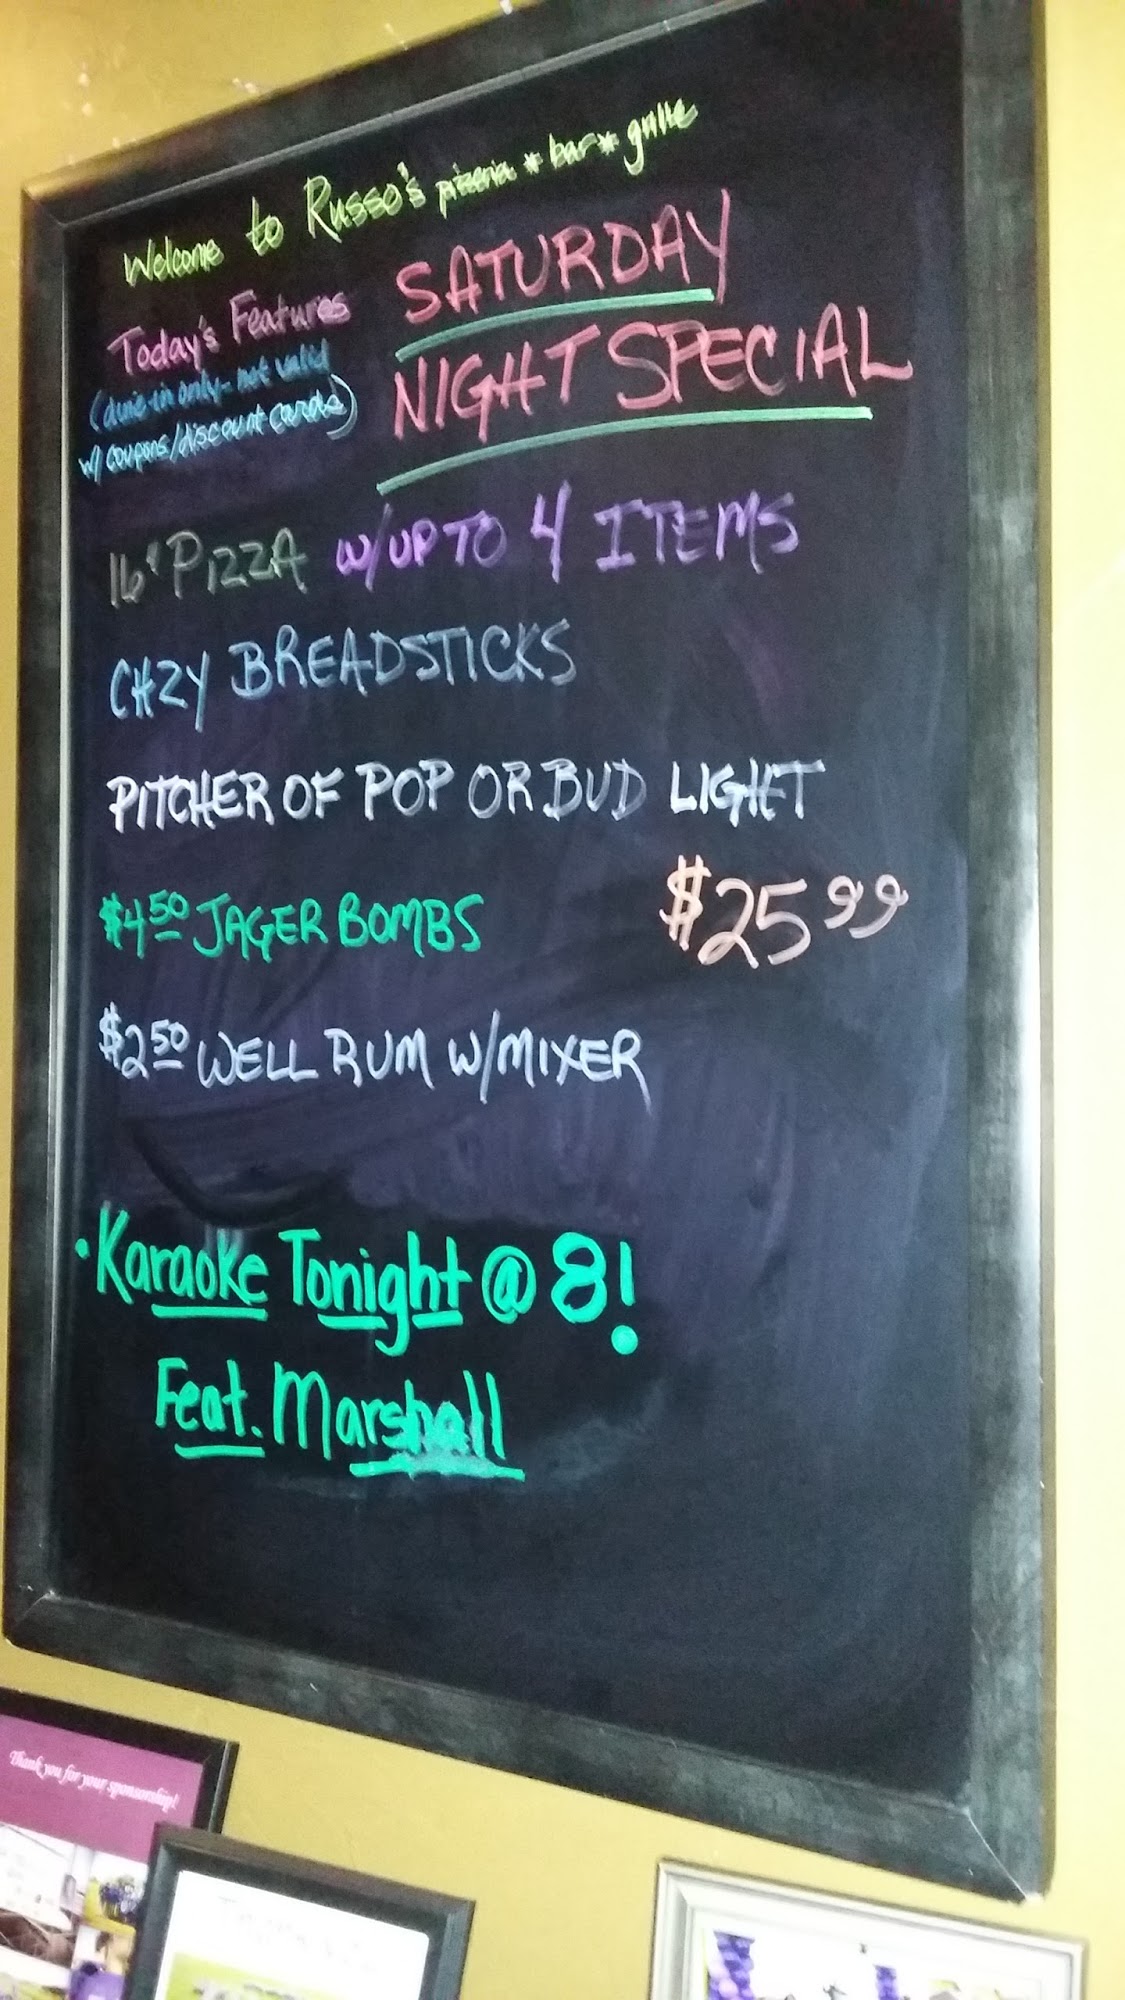 Welcome to Russo's pizzeria * bar * grille
Today's Features
(dine-in only - not valid
w/ coupons/discount cards)
SATURDAY
NIGHT SPECIAL
16" PIZZA W/UP TO 4 ITEMS
CHZY BREADSTICKS
PITCHER OF POP OR BUD LIGHT
$25.99
$4.50 JAGER BOMBS
$2.50 WELL RUM W/MIXER
·Karaoke Tonight @ 8!
Feat. Marshall
Thank you for your sponsorship!